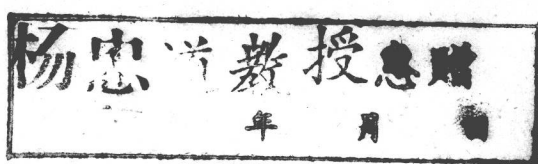 杨忠道教授惠赠
年 月